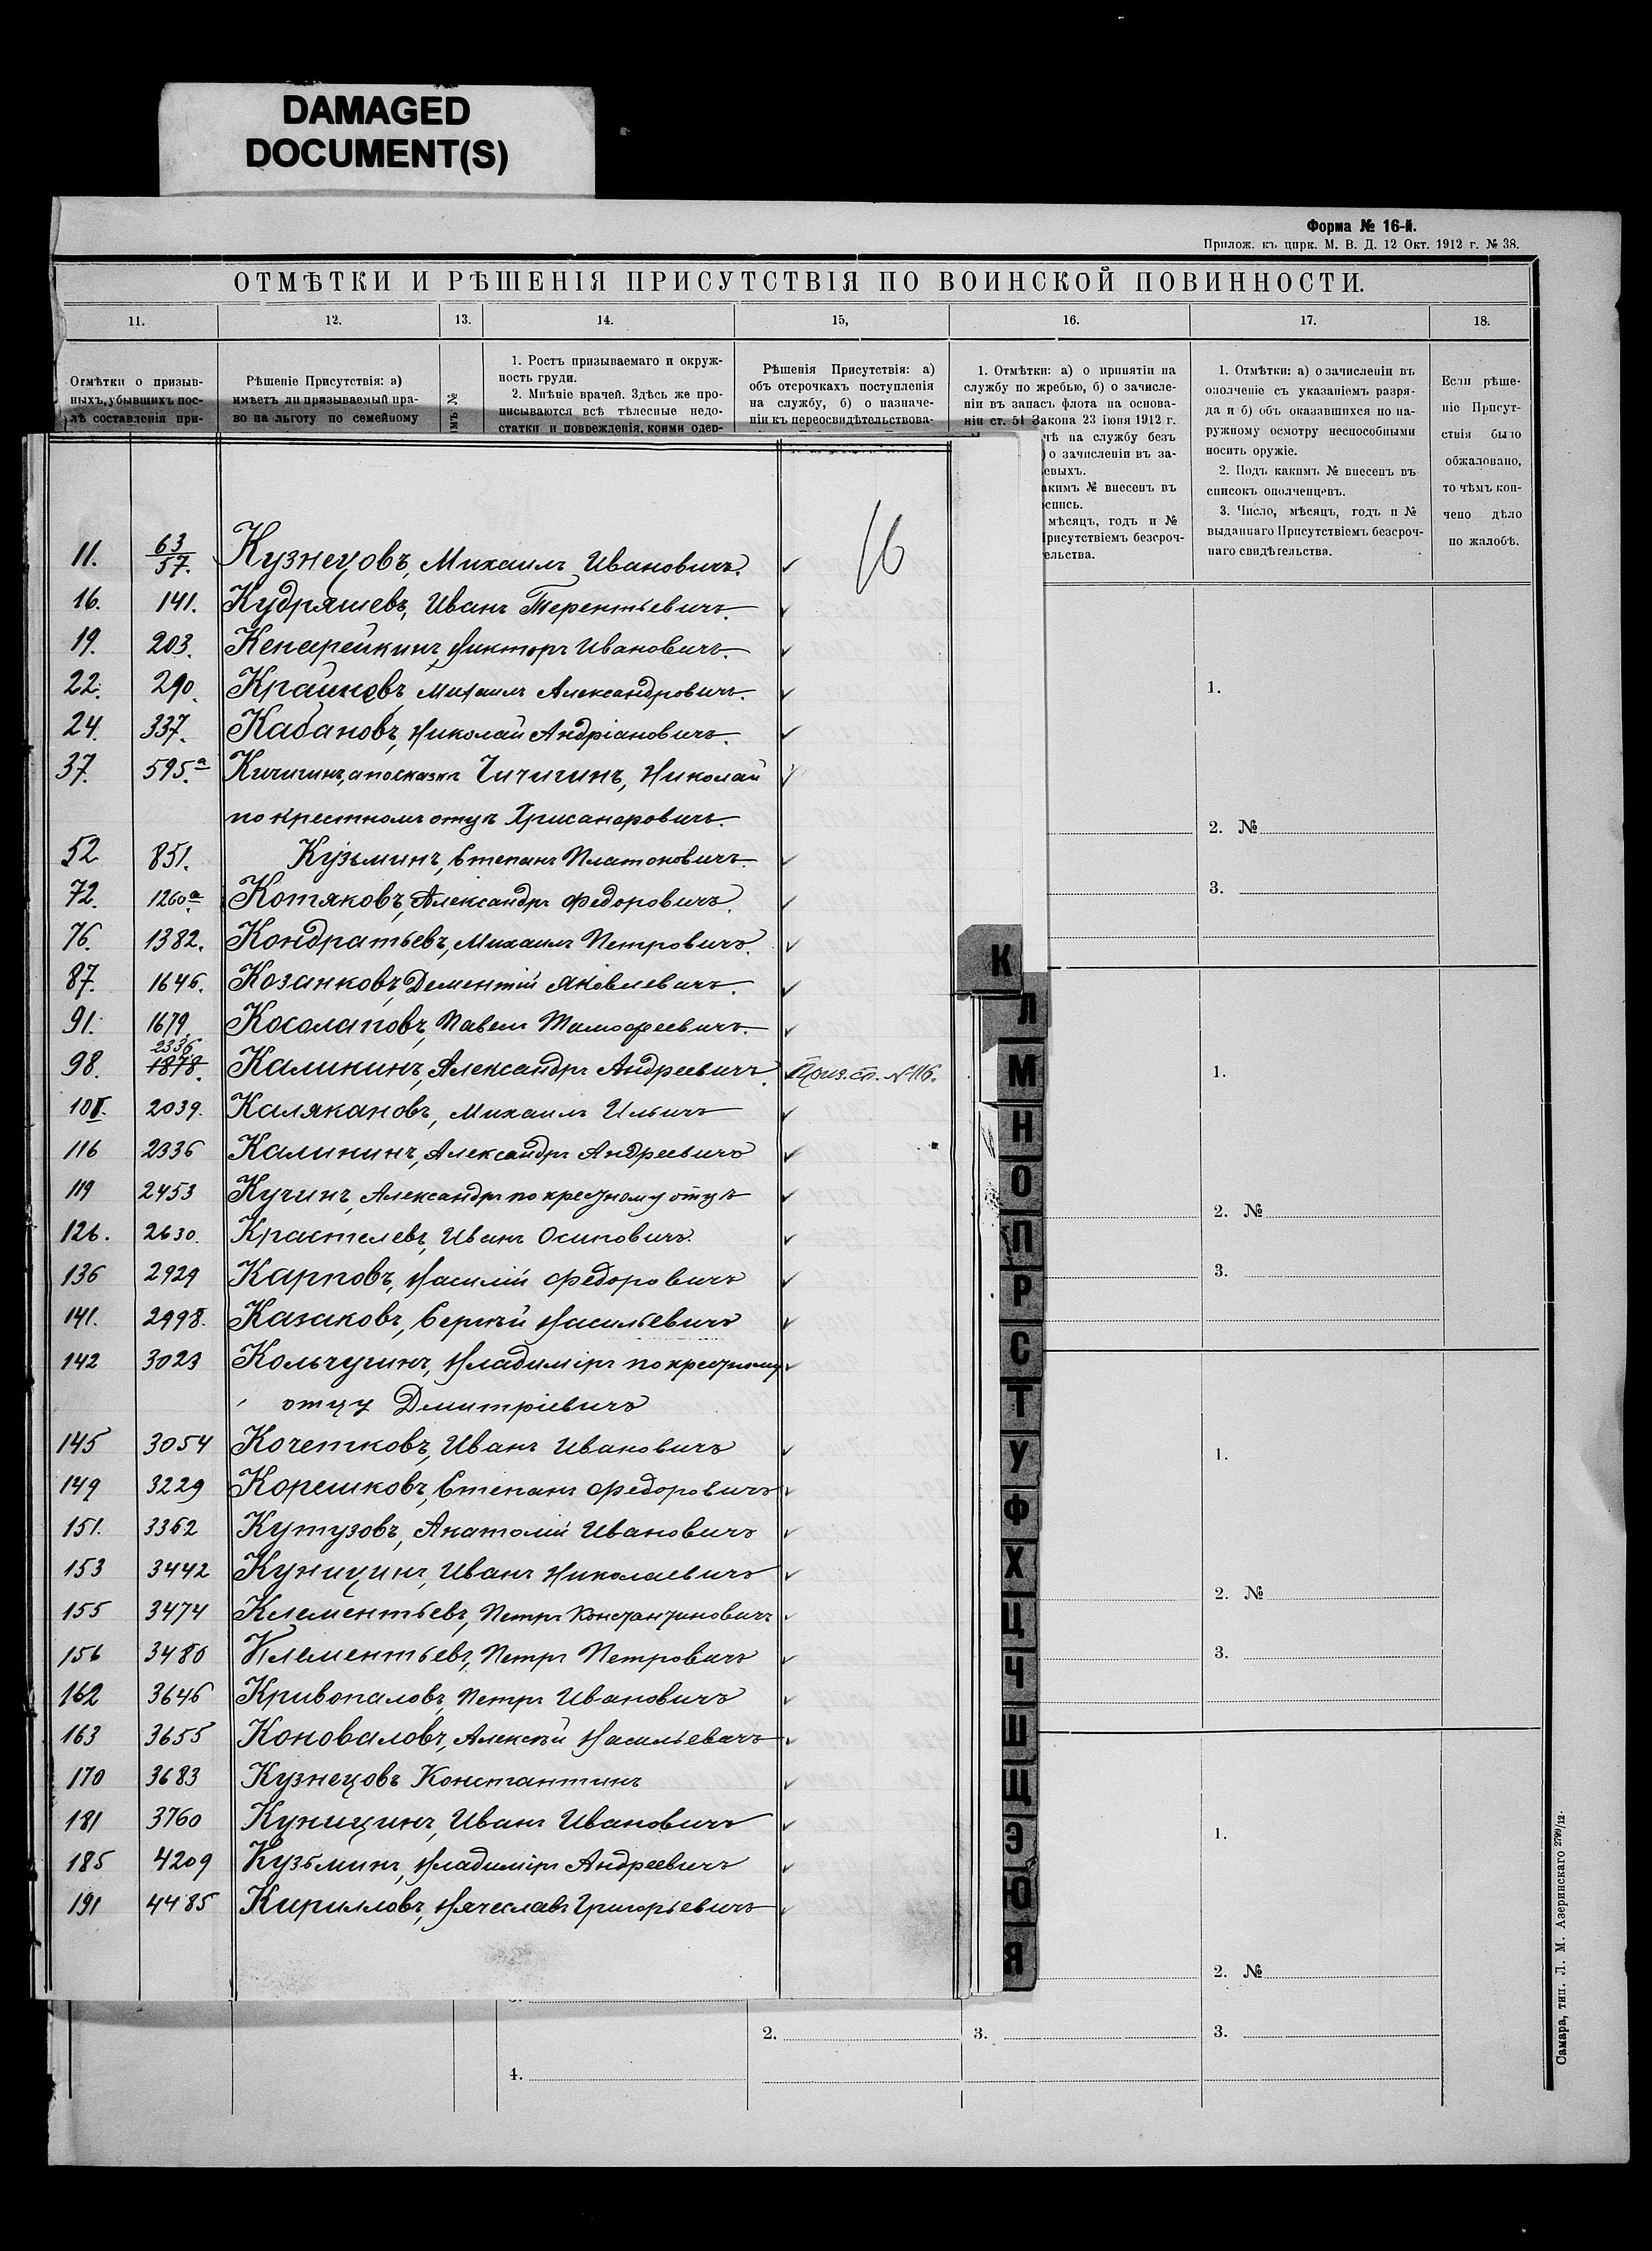 DAMAGED
DOCUMENT(S)
Форма № 16-й.
Прилож. къ цирк. М. В. Д. 12 Окт. 1912 г. № 38.
ОТМѢТКИ И РѢШЕНІЯ ПРИСУТСТВІЯ ПО ВОИНСКОЙ ПОВИННОСТИ.
11. 12. 13. 14. 15, 16. 17. 18.
Отмѣтки о призыв-
ныхъ, убывшихъ пос-
лѣ составленія при-
Рѣшеніе Присутствія: а)
имѣетъ ли призываемый пра-
во на льготу по семейному
мъ №
1. Ростъ призываемаго и окруж-
ность груди.
2. Мнѣніе врачей. Здѣсь же про-
писываются всѣ тѣлесные недо-
статки и поврежденія, коими одер-
Рѣшенія Присутствія: а)
объ отсрочкахъ поступленія
на службу, б) о назначе-
ніи къ переосвидѣтельствова-
1. Отмѣтки: а) о принятіи на
службу по жребью, б) о зачисле-
ніи въ запасъ флота на основа-
ніи ст. 51 Закона 23 іюня 1912 г.
чѣ на службу безъ
) о зачисленіи въ за-
евыхъ.
акимъ № внесенъ въ
опись.
мѣсяцъ, годъ и №
Присутствіемъ безсроч-
ельства.
1. Отмѣтки: а) о зачисленіи въ
ополченіе съ указаніемъ разря-
да и б) объ оказавшихся по на-
ружному осмотру неспособными
носить оружіе.
2. Подъ какимъ № внесенъ въ
списокъ ополченцевъ.
3. Число, мѣсяцъ, годъ и №
выданнаго Присутствіемъ безсроч-
наго свидѣтельства.
Если рѣше-
ніе Присут-
ствія было
обжаловано,
то чѣмъ кон-
чено дѣло
по жалобѣ.
16
11. 63/57. Кузнецовъ, Михаилъ Ивановичъ.
16. 141. Кудряшевъ, Иванъ Терентьевичъ.
19. 203. Кенарейкинъ, Викторъ Ивановичъ.
22. 290. Крайновъ, Михаилъ Александровичъ.
24. 337. Кабановъ, Николай Андріановичъ.
37. 595.а Кичигинъ, а по сказкѣ Чичигинъ, Николай
по крестномъ отцѣ Хрисанфовичъ.
52 851. Кузьминъ, Степанъ Платоновичъ.
72. 1260а Котяковъ, Александръ Федоровичъ.
76. 1382. Кондратьевъ, Михаилъ Петровичъ.
87. 1646. Козанковъ, Дементій Яковлевичъ.
91. 1679. Косолаповъ, Павелъ Тимофеевичъ.
2336
98. 1878. Калининъ, Александръ Андреевичъ. Приз. сп. № 116.
101. 2039. Каляkановъ, Михаилъ Ильичъ
116 2336 Калининъ, Александръ Андреевичъ
119 2453 Кучинъ, Александръ по крестному отцѣ
126. 2630. Крастелевъ, Иванъ Осиповичъ.
136 2929 Карповъ, Василій Федоровичъ
141. 2998. Казаковъ, Сергѣй Васильевичъ
142 3023 Кольчугинъ, Владиміръ по крестному
отцу Дмитріевичъ
145 3054 Кочетковъ, Иванъ Ивановичъ
149 3229 Корешковъ, Степанъ Федоровичъ
151. 3362 Кутузовъ, Анатолій Ивановичъ
153 3442 Куницинъ, Иванъ Николаевичъ
155 3474 Клементьевъ, Петръ Константиновичъ
156 3480 Клементьевъ, Петръ Петровичъ
162 3646 Кривопаловъ, Петръ Ивановичъ
163 3655 Коноваловъ, Алексѣй Васильевичъ
170 3683 Кузнецовъ Константинъ
181 3760 Куницинъ, Иванъ Ивановичъ
185 4209 Кузьминъ, Владиміръ Андреевичъ
191 4485 Кирилловъ, Вячеславъ Григорьевичъ
К
Л
М
Н
О
П
Р
С
Т
У
Ф
Х
Ц
Ч
Ш
Щ
Э
Ю
Я
1.
2. №
3.
1.
2. №
3.
1.
2. №
3.
1.
2. №
2. 3. 3.
4.
Самара, тип. Л. М. Азеринскаго 2799/12.